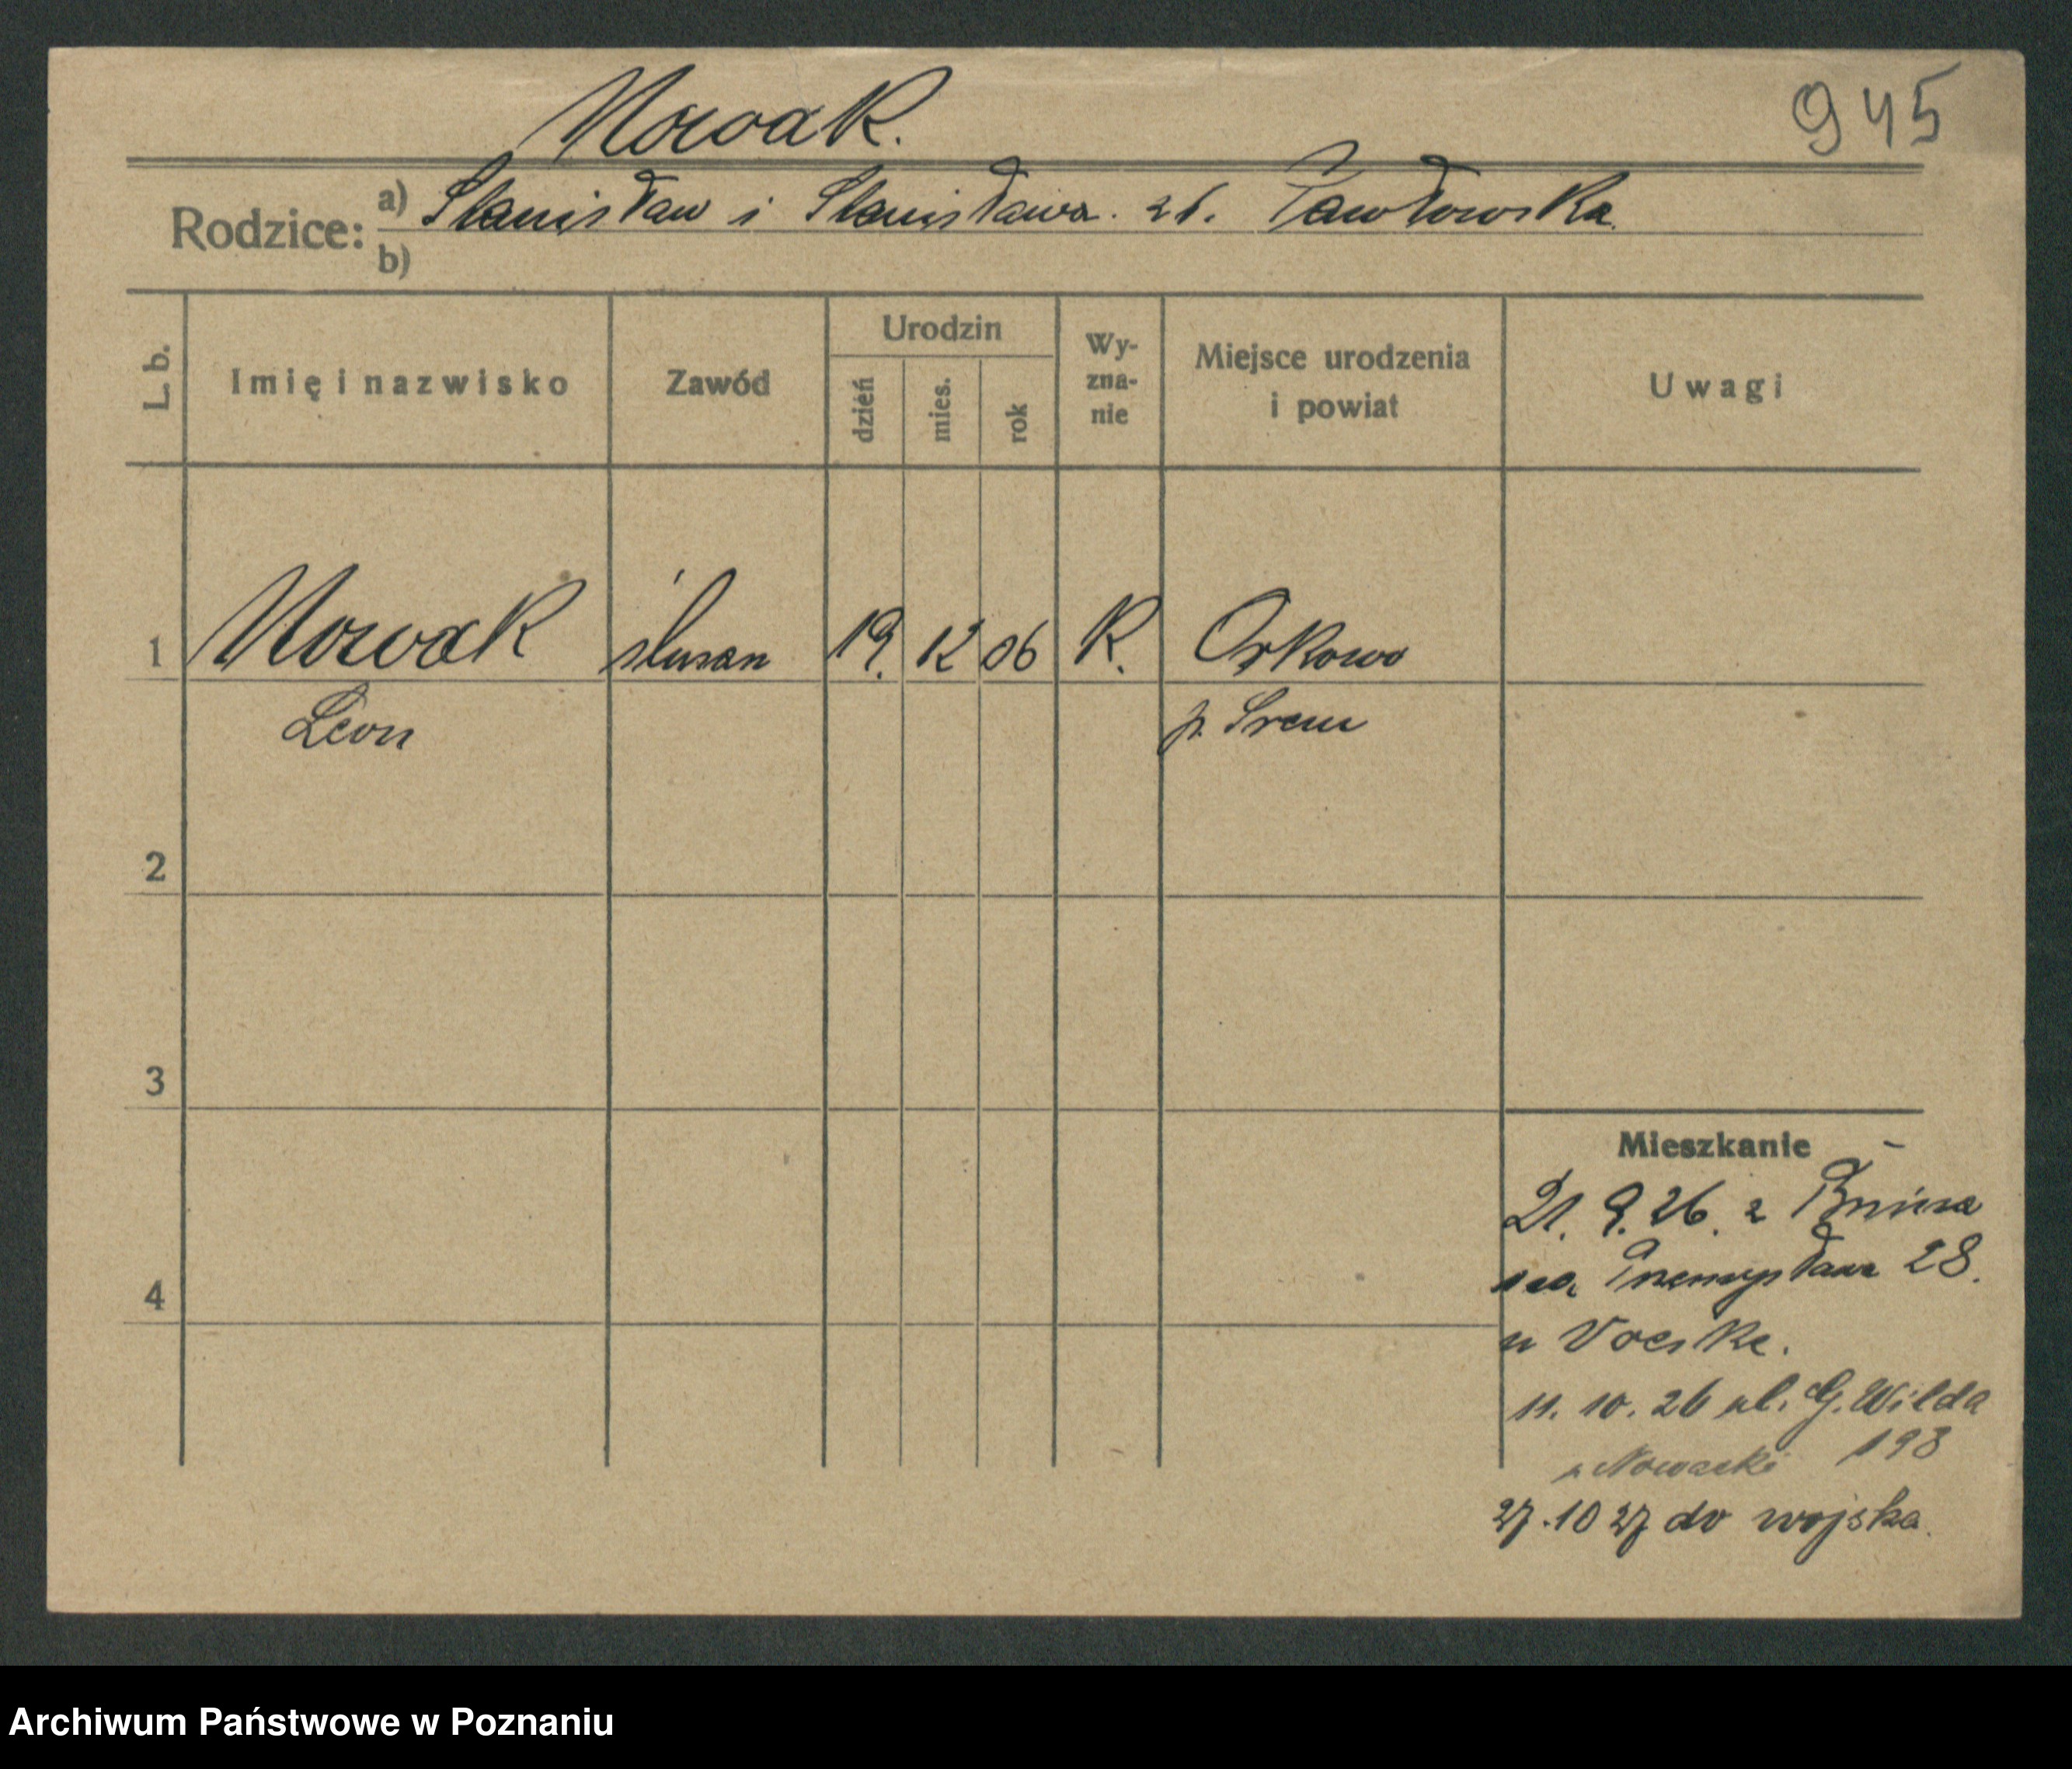 945
Nowak.
Rodzice: a) Stanisław i Stanisława. zd. Pawłowska.
b)
L. b. Imię i nazwisko Zawód Urodzin dzień mies. rok Wy-zna-nie Miejsce urodzenia i powiat Uwagi
1 Nowak ślusarz 19. 12 06 K. Orkowo
Leon p. Śrem
2
3
4
Mieszkanie
21. 9. 26. z Bnina
Przemysława 28.
u
11. 10. 26 ul. G. Wilda
193
p Nowacki
27.10 27 do wojska.
Archiwum Państwowe w Poznaniu